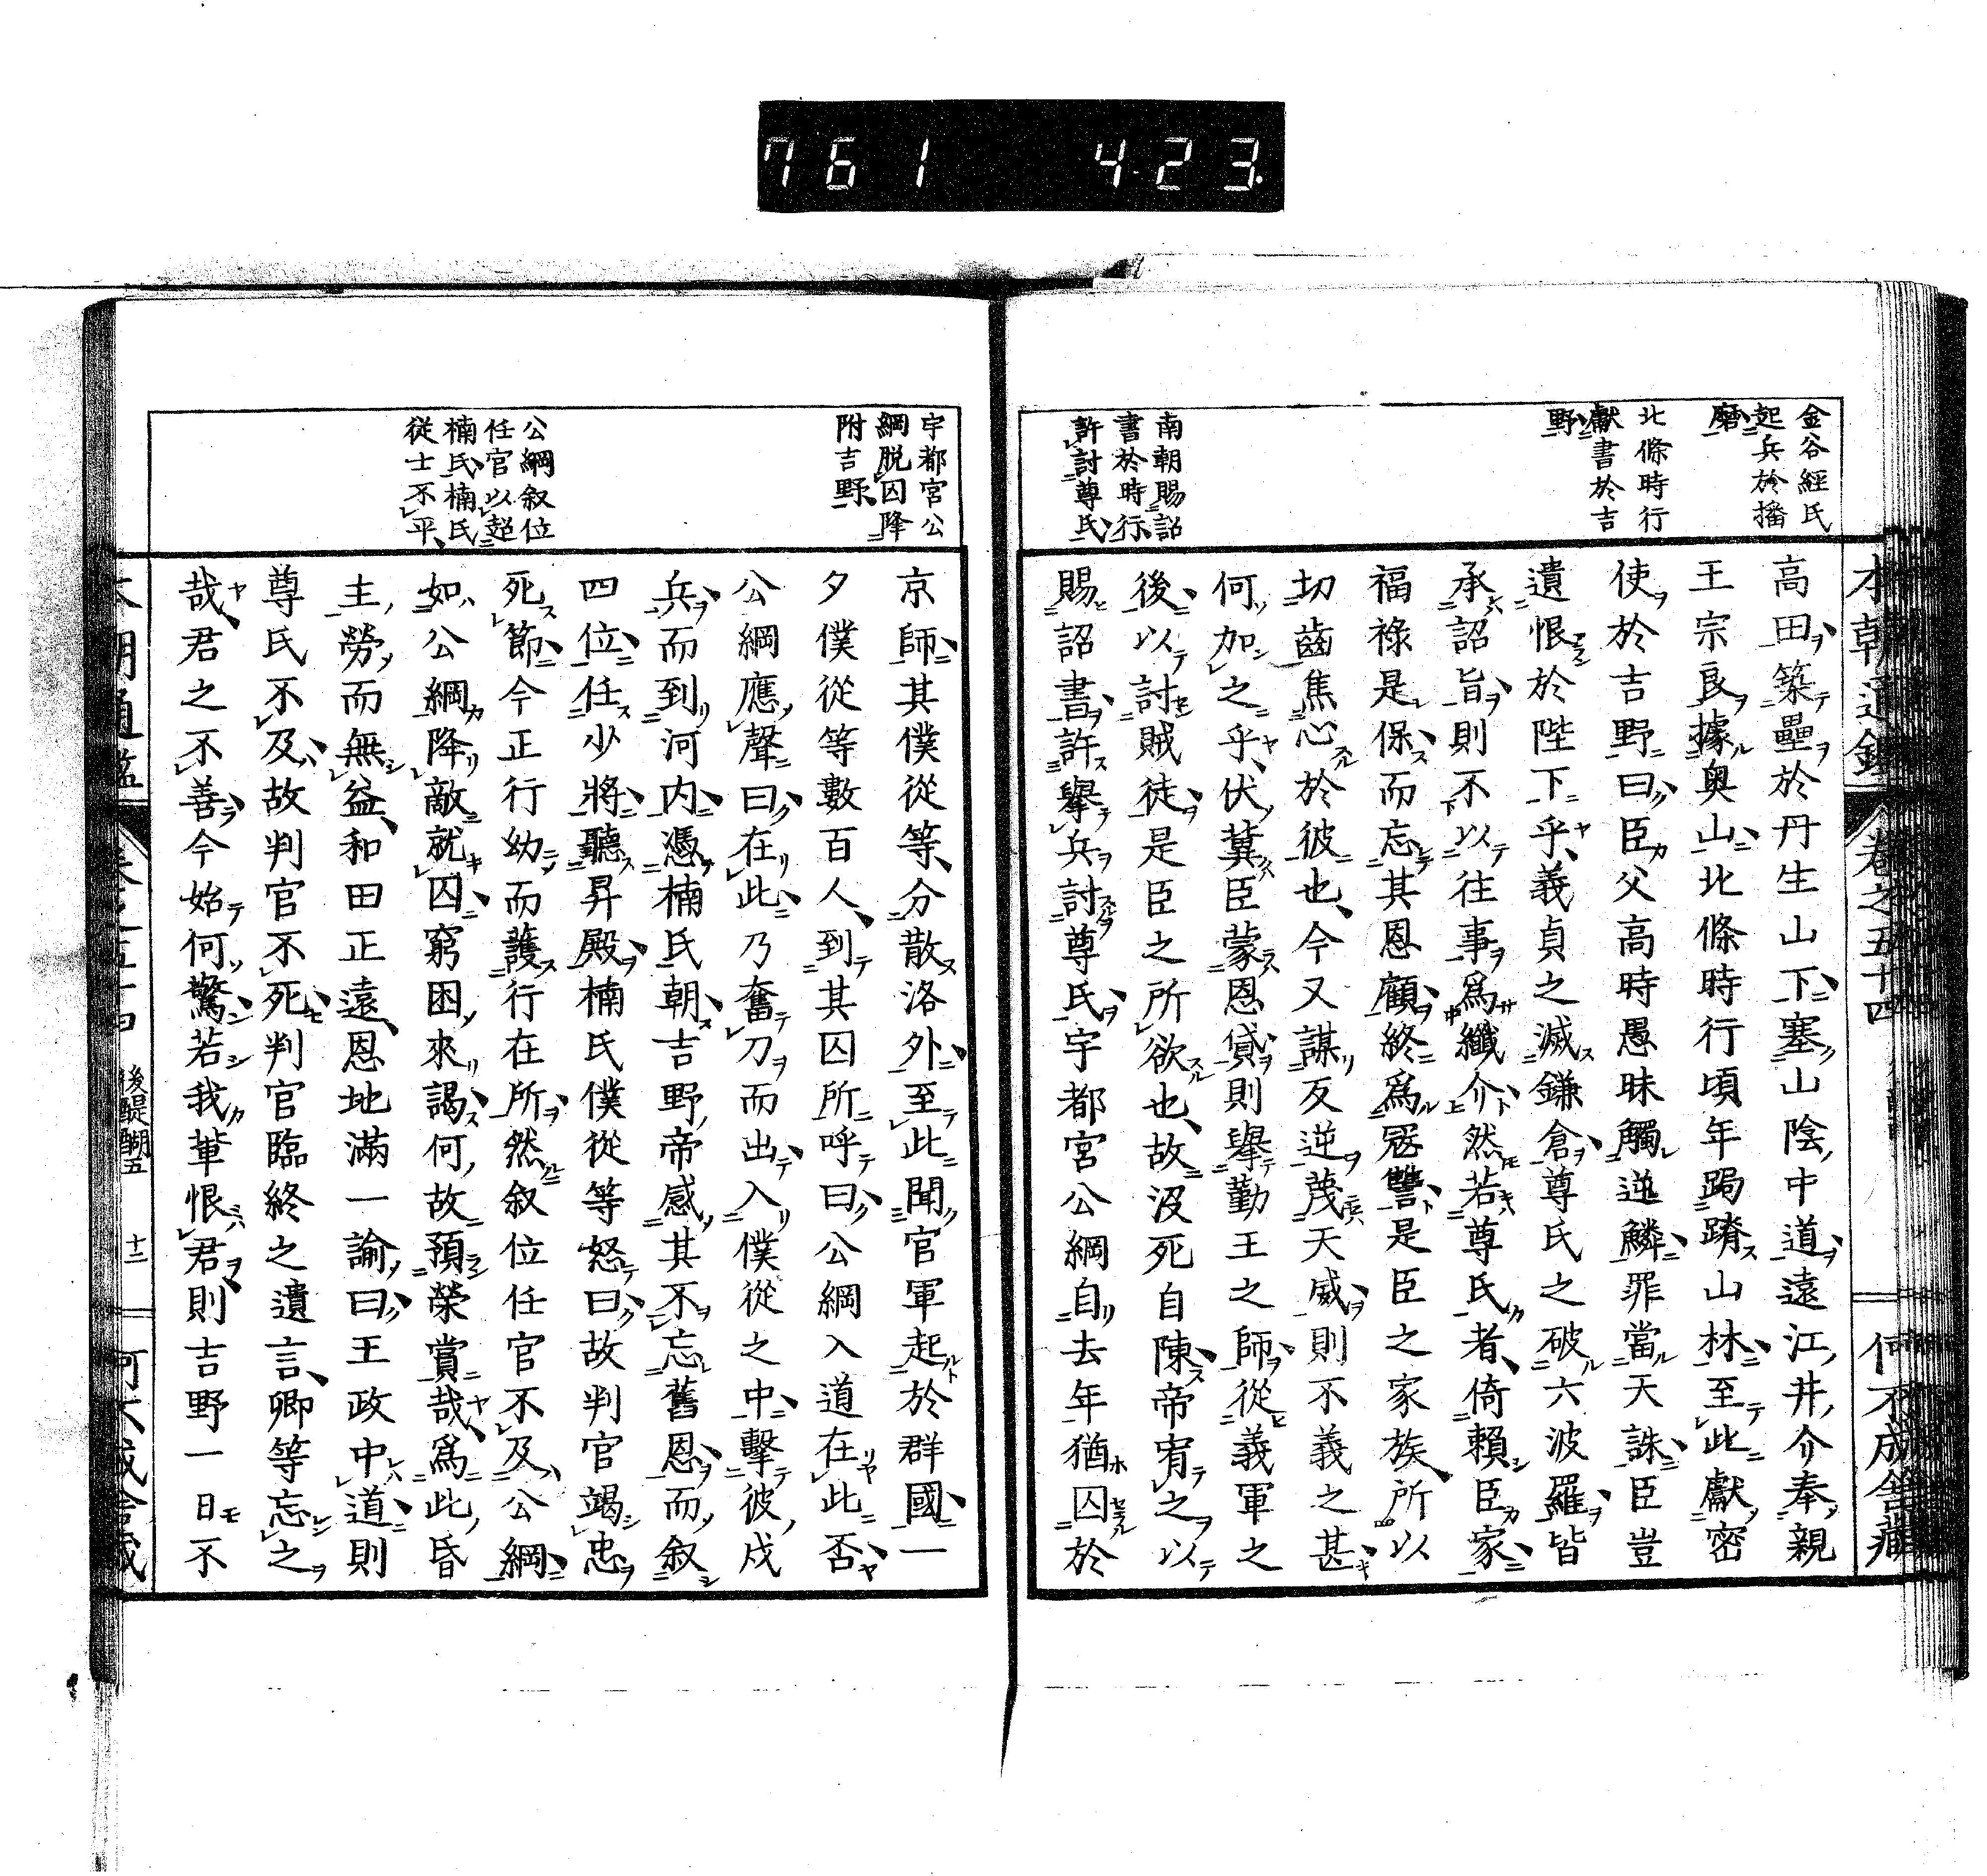 761 423
本朝通鑑 卷之五十四 何不成舍藏
金谷經氏
起兵於播
磨
北條時行
獻書於吉
野
南朝賜詔
書於時行
許討尊氏
高田築壘於丹生山下塞山陰中道遠江井介奉親
王宗良據奥山北條時行頃年跼蹐山林至此獻密
使於吉野曰臣父高時愚昧觸逆鱗罪當天誅臣豈
遺恨於陛下乎義貞之滅鎌倉尊氏之破六波羅皆
承詔旨則不以往事爲纎介然若尊氏者倚賴臣家
福祿是保而忘其恩顧終爲冦讐是臣之家族所以
切齒焦心於彼也今又謀反逆蔑天威則不義之甚
何加之乎伏冀臣蒙恩貸則擧勤王之師從義軍之
後以討賊徒是臣之所欲也故没死自陳帝宥之以
賜詔書許擧兵討尊氏宇都宮公綱自去年猶囚於
宇都宮公
綱脱囚降
附吉野
公綱叙位
任官以超
楠氏楠氏
從士不平
京師其僕從等分散洛外至此聞官軍起於群國一
夕僕從等數百人到其囚所呼曰公綱入道在此否
公綱應聲曰在此乃奮刀而出入僕從之中擊彼戍
兵而到河内憑楠氏朝吉野帝感其不忘舊恩而叙
四位任少將聽昇殿楠氏僕從等怒曰故判官竭忠
死節今正行幼而護行在所然叙位任官不及公綱
如公綱降敵就囚窮困來謁何故預榮賞哉爲此昏
主勞而無益和田正遠恩地滿一諭曰王政中道則
尊氏不及故判官不死判官臨終之遺言卿等忘之
哉君之不善今始何驚若我輩恨君則吉野一日不
本朝通鑑 卷之五十四 後醍醐五 十二 何不成舍藏